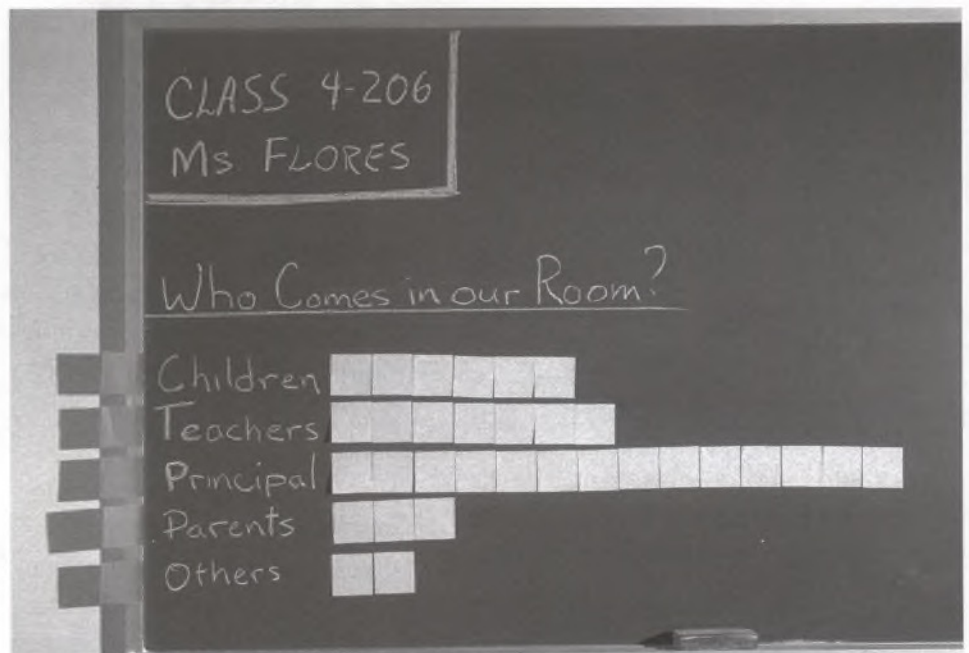 CLASS 4-206
Ms FLORES
Who Comes in our Room?
Children
Teachers
Principal
Parents
Others